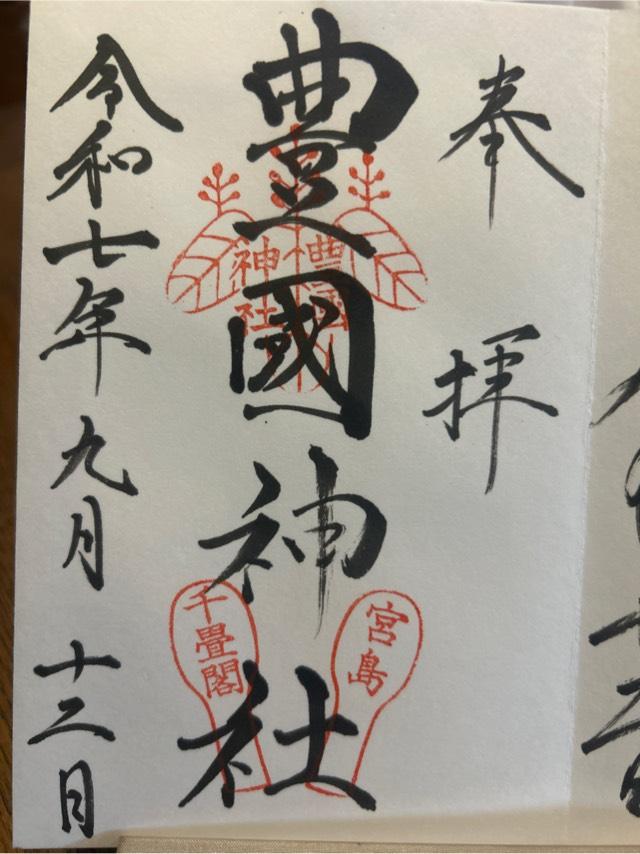 奉拝
豊國神社
豊國
神社
宮島
千畳閣
令和七年九月十二日